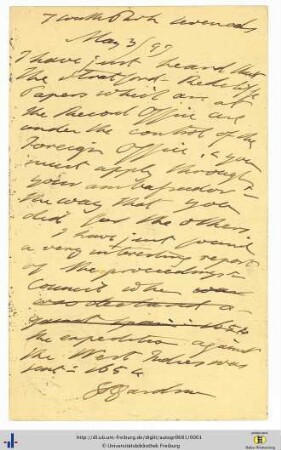 7 South Park Sevenoaks
May 3/97
I have just heard that
the Stratford Redcliffe
Papers which are at
the Record Office are
under the control of the
Foreign Office, & you
must apply through
your ambassador in
the way that you
did for the others.
I have just found
a very interesting report
of the proceedings in
Council when war
was declared a-
gainst Spain in 1654
the expedition against
the West Indies was
sent in 1654
S R Gardiner
http://dl.ub.uni-freiburg.de/diglit/autogr0681/0001
© Universitätsbibliothek Freiburg